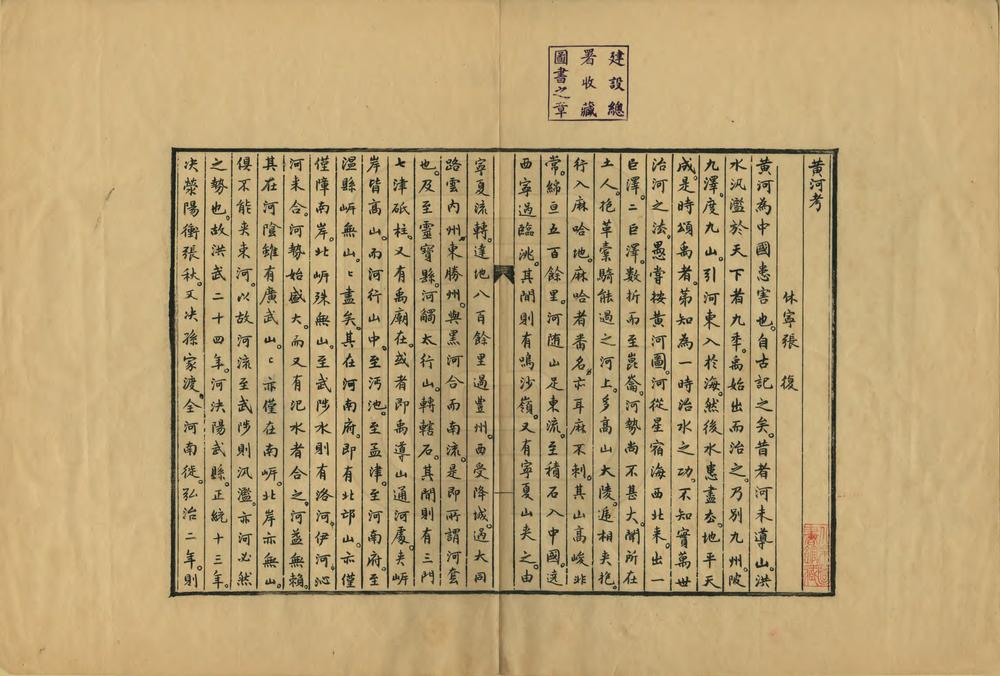 建設總
署收藏
圖書之章
黄河考
休寧張 復
黄河為中國患害也。自古記之矣。昔者河未導山。洪
水汎濫於天下者九秊。禹始出而治之。乃別九州。陂
九澤。度九山。引河東入於海。然後水患盡去。地平天
成。是時頌禹者。第知為一時治水之功。不知實萬世
治河之法。愚嘗按黄河圖。河從星宿海西北来。出一
巨澤。二巨澤。数折而至崑崙。河勢尚不甚大。聞所在
土人。抱革索騎能過之河上。多高山大陵。逓相夾抱。
行入麻哈地。麻哈者番名。亦耳麻不剌。其山高峻非
常。綿亘五百餘里。河随山足東流。至積石入中國。遶
西寧過臨洮。其間則有鳴沙嶺。又有寧夏山夹之。由
寧夏流轉。達地八百餘里過豊州。西受降城。過大同
路雲内州東勝州。與黒河合而南流。是即所謂河套
也。及至靈寶縣。河觸太行山。轉轄石。其間則有三門
七津砥柱。又有禹廟在。或者即禹導山通河處。夹岍
岸皆高山。而河行山中。至沔池。至孟津。至河南府。至
温縣岍無山。〻盡矣。其在河南府。即有北邙山。亦僅
僅障南岸。北岍殊無山。至武陟水則有洛河。伊河。沁
河来合。河勢始盛大。而又有汜水者合之。河益無賴。
其在河陰雖有廣武山。〻亦僅在南岍。北岸亦無山。
俱不能夹束河。以故河流至武陟則汎濫。亦河必然
之勢也。故洪武二十四年。河决陽武縣。正統十三年。
决滎陽衝張秋。又决孫家渡。全河南徙。弘治二年。則